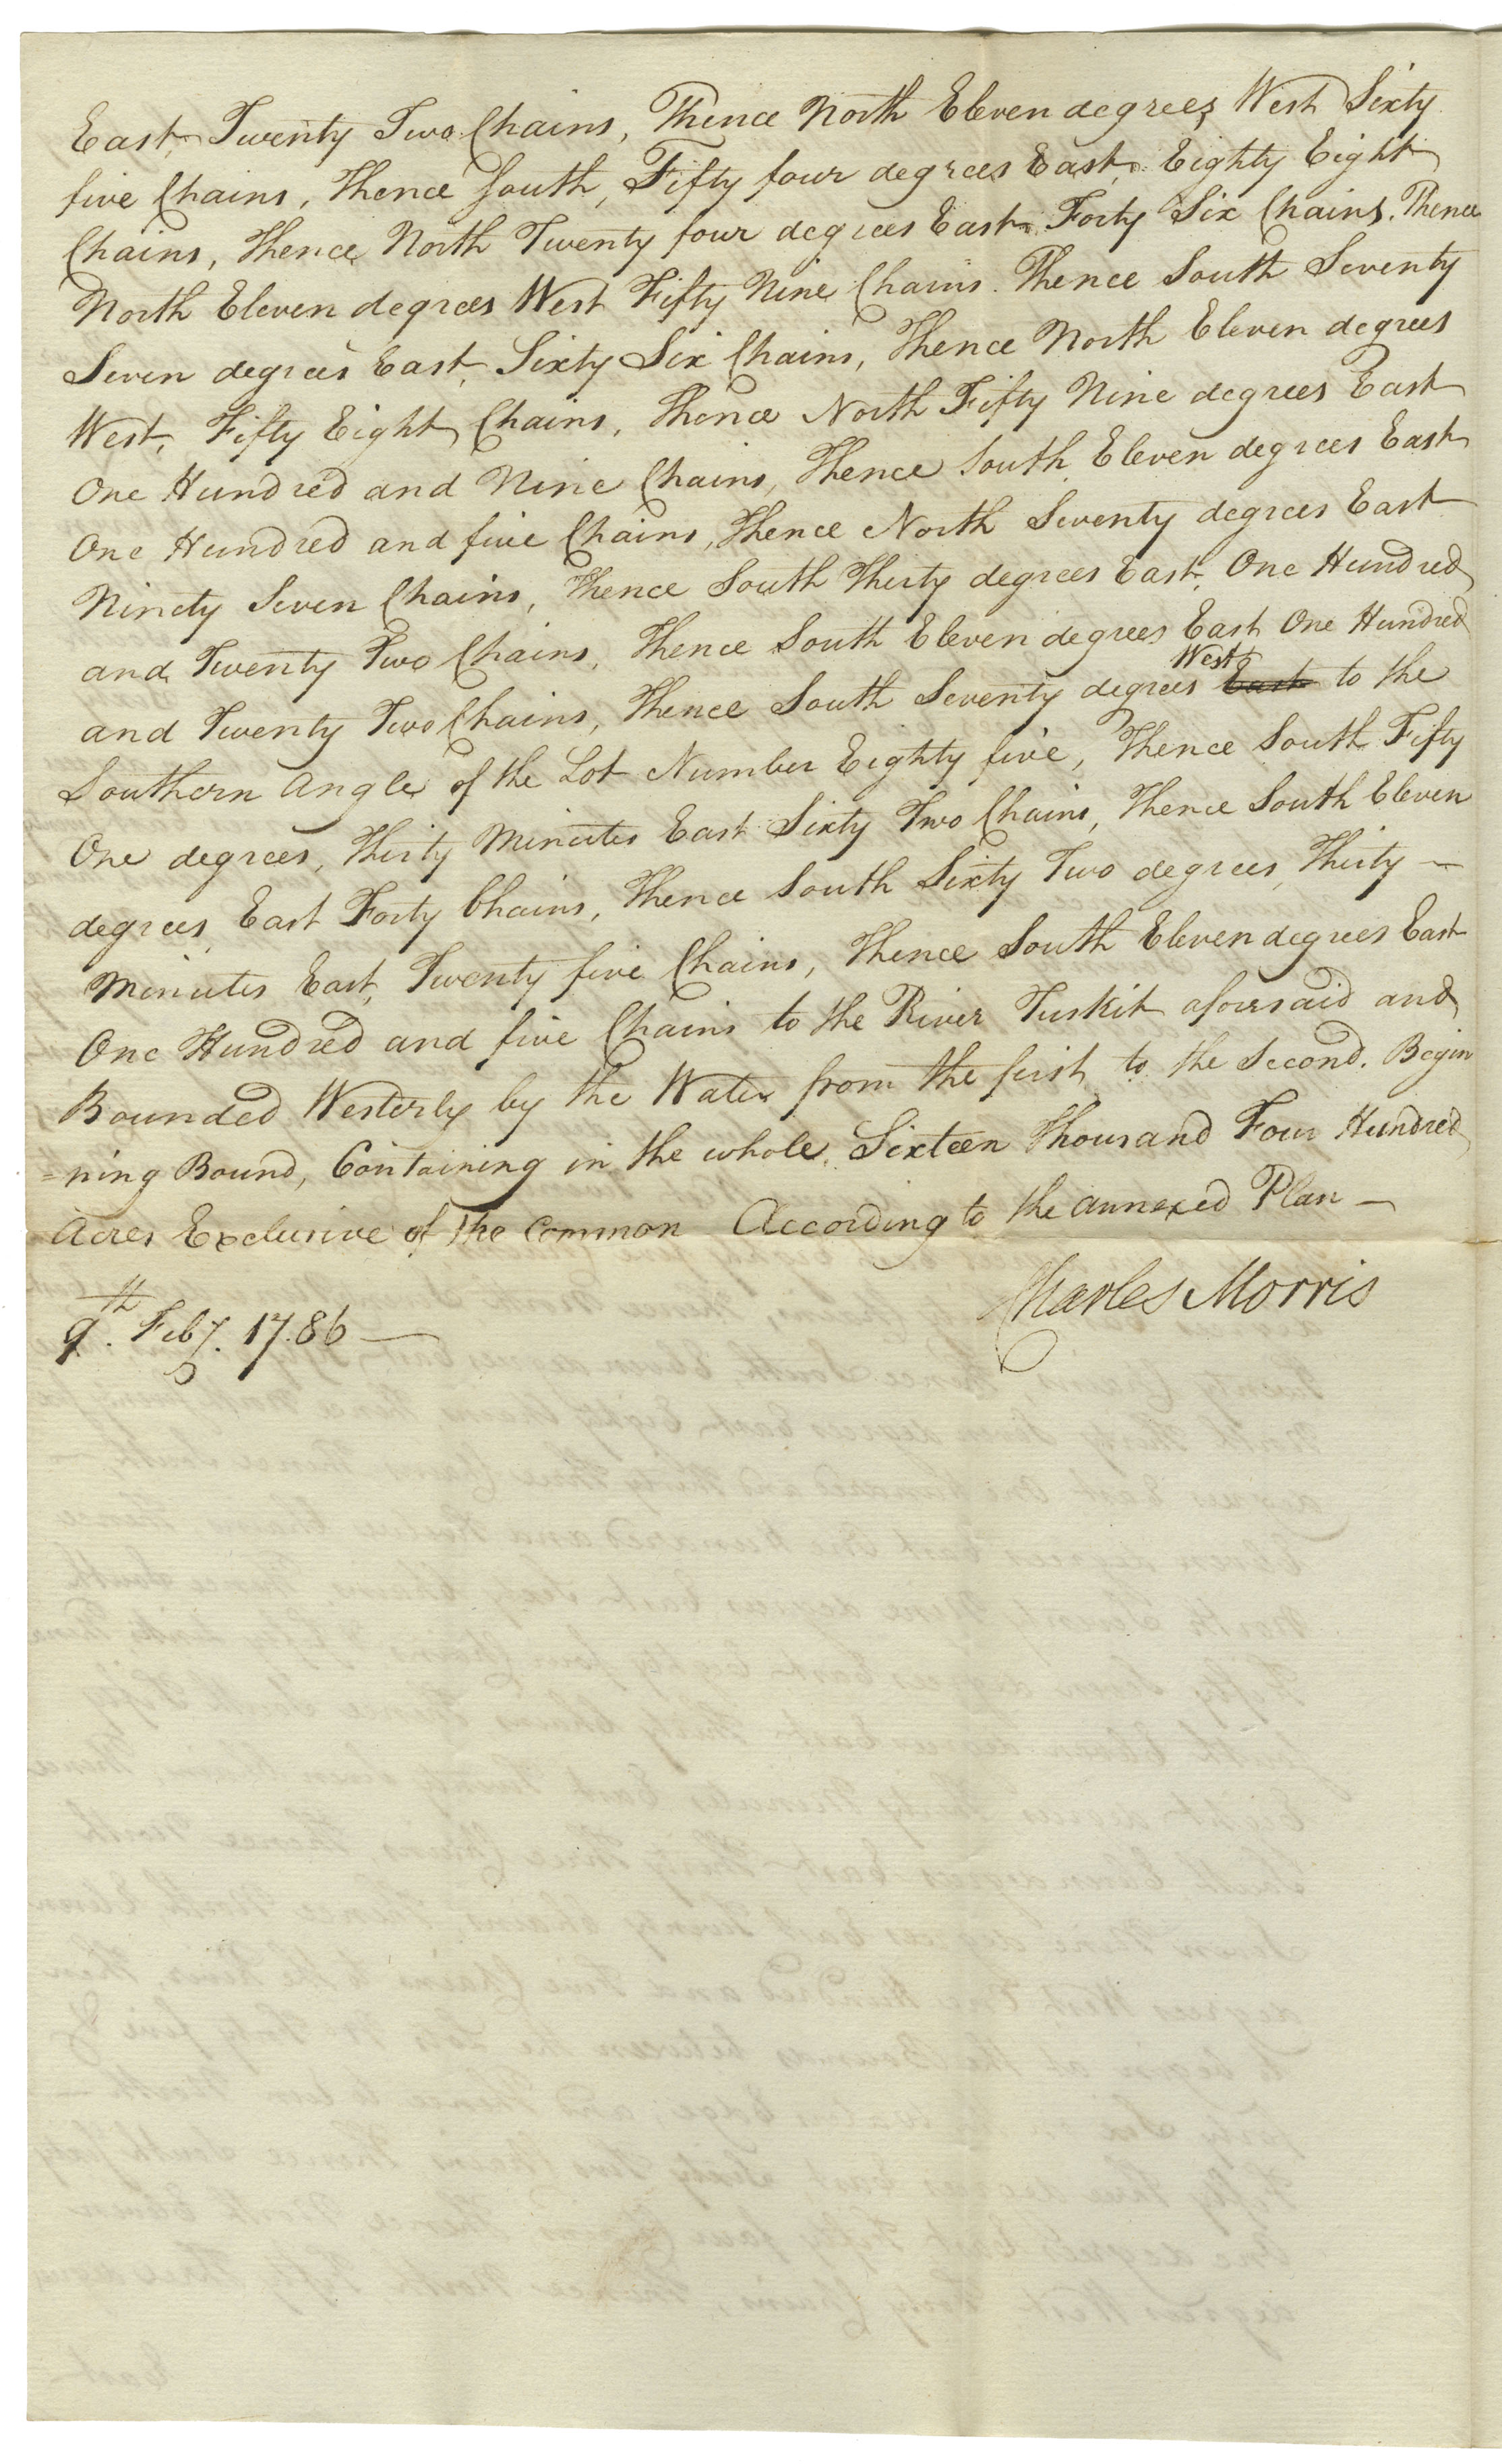 East, Twenty Two Chains, Thence North Eleven degrees West Sixty
five Chains, Thence South, Fifty four degrees East, Eighty Eight
Chains, Thence North Twenty four degrees East Forty Six Chains. Thence
North Eleven degrees West Fifty Nine Chains. Thence South Seventy
Seven degrees East, Sixty Six Chains, Thence North Eleven degrees
West, Fifty Eight Chains, Thence North Fifty Nine degrees East
One Hundred and Nine Chains, Thence South Eleven degrees East
One Hundred and five Chains, Thence North Seventy degrees East
Ninety Seven Chains, Thence South Thirty degrees East, One Hundred
and Twenty Two Chains, Thence South Eleven degrees East One Hundred
and Twenty Two Chains, Thence South Seventy degrees West East to the
Southern Angle of the Lot Number Eighty five, Thence South Fifty
One degrees, Thirty Minutes East Sixty Two Chains, Thence South Eleven
degrees East Forty Chains, Thence South Sixty Two degrees, Thirty —
Minutes East, Twenty five Chains, Thence South Eleven degrees East
One Hundred and five Chains to the River Tuskit aforesaid and
Bounded Westerly by the Water from the first to the Second. Begin
=ning Bound, Containing in the whole, Sixteen Thousand Four Hundred
Acres Exclusive of the Common According to the annexed Plan —
Charles Morris
9th. Feby. 1786 —